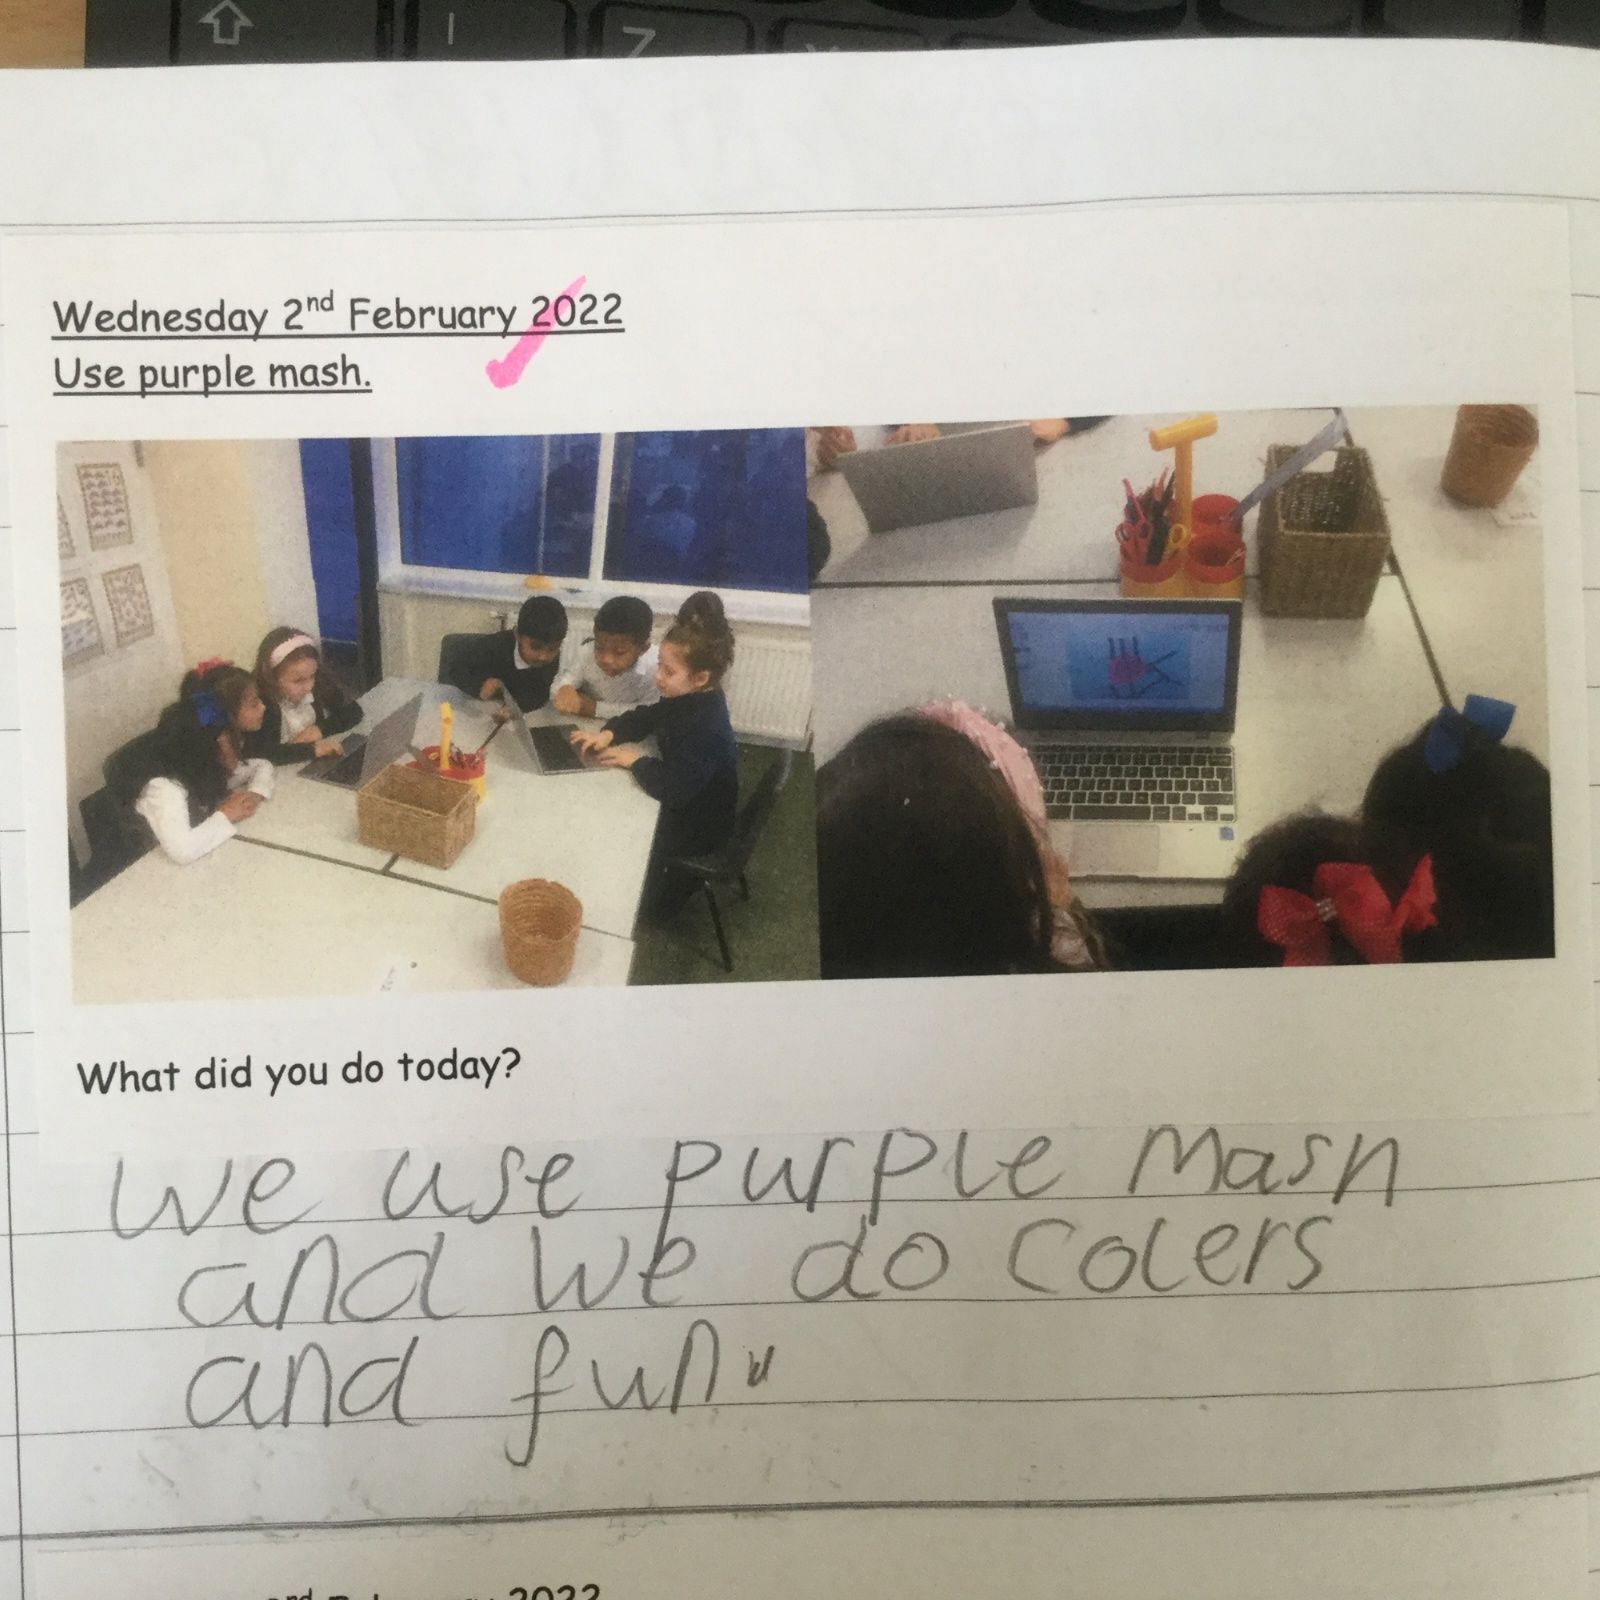 Wednesday 2nd February 2022
Use purple mash.
What did you do today?
We use purple Mash
and we do colers
and fun
2022